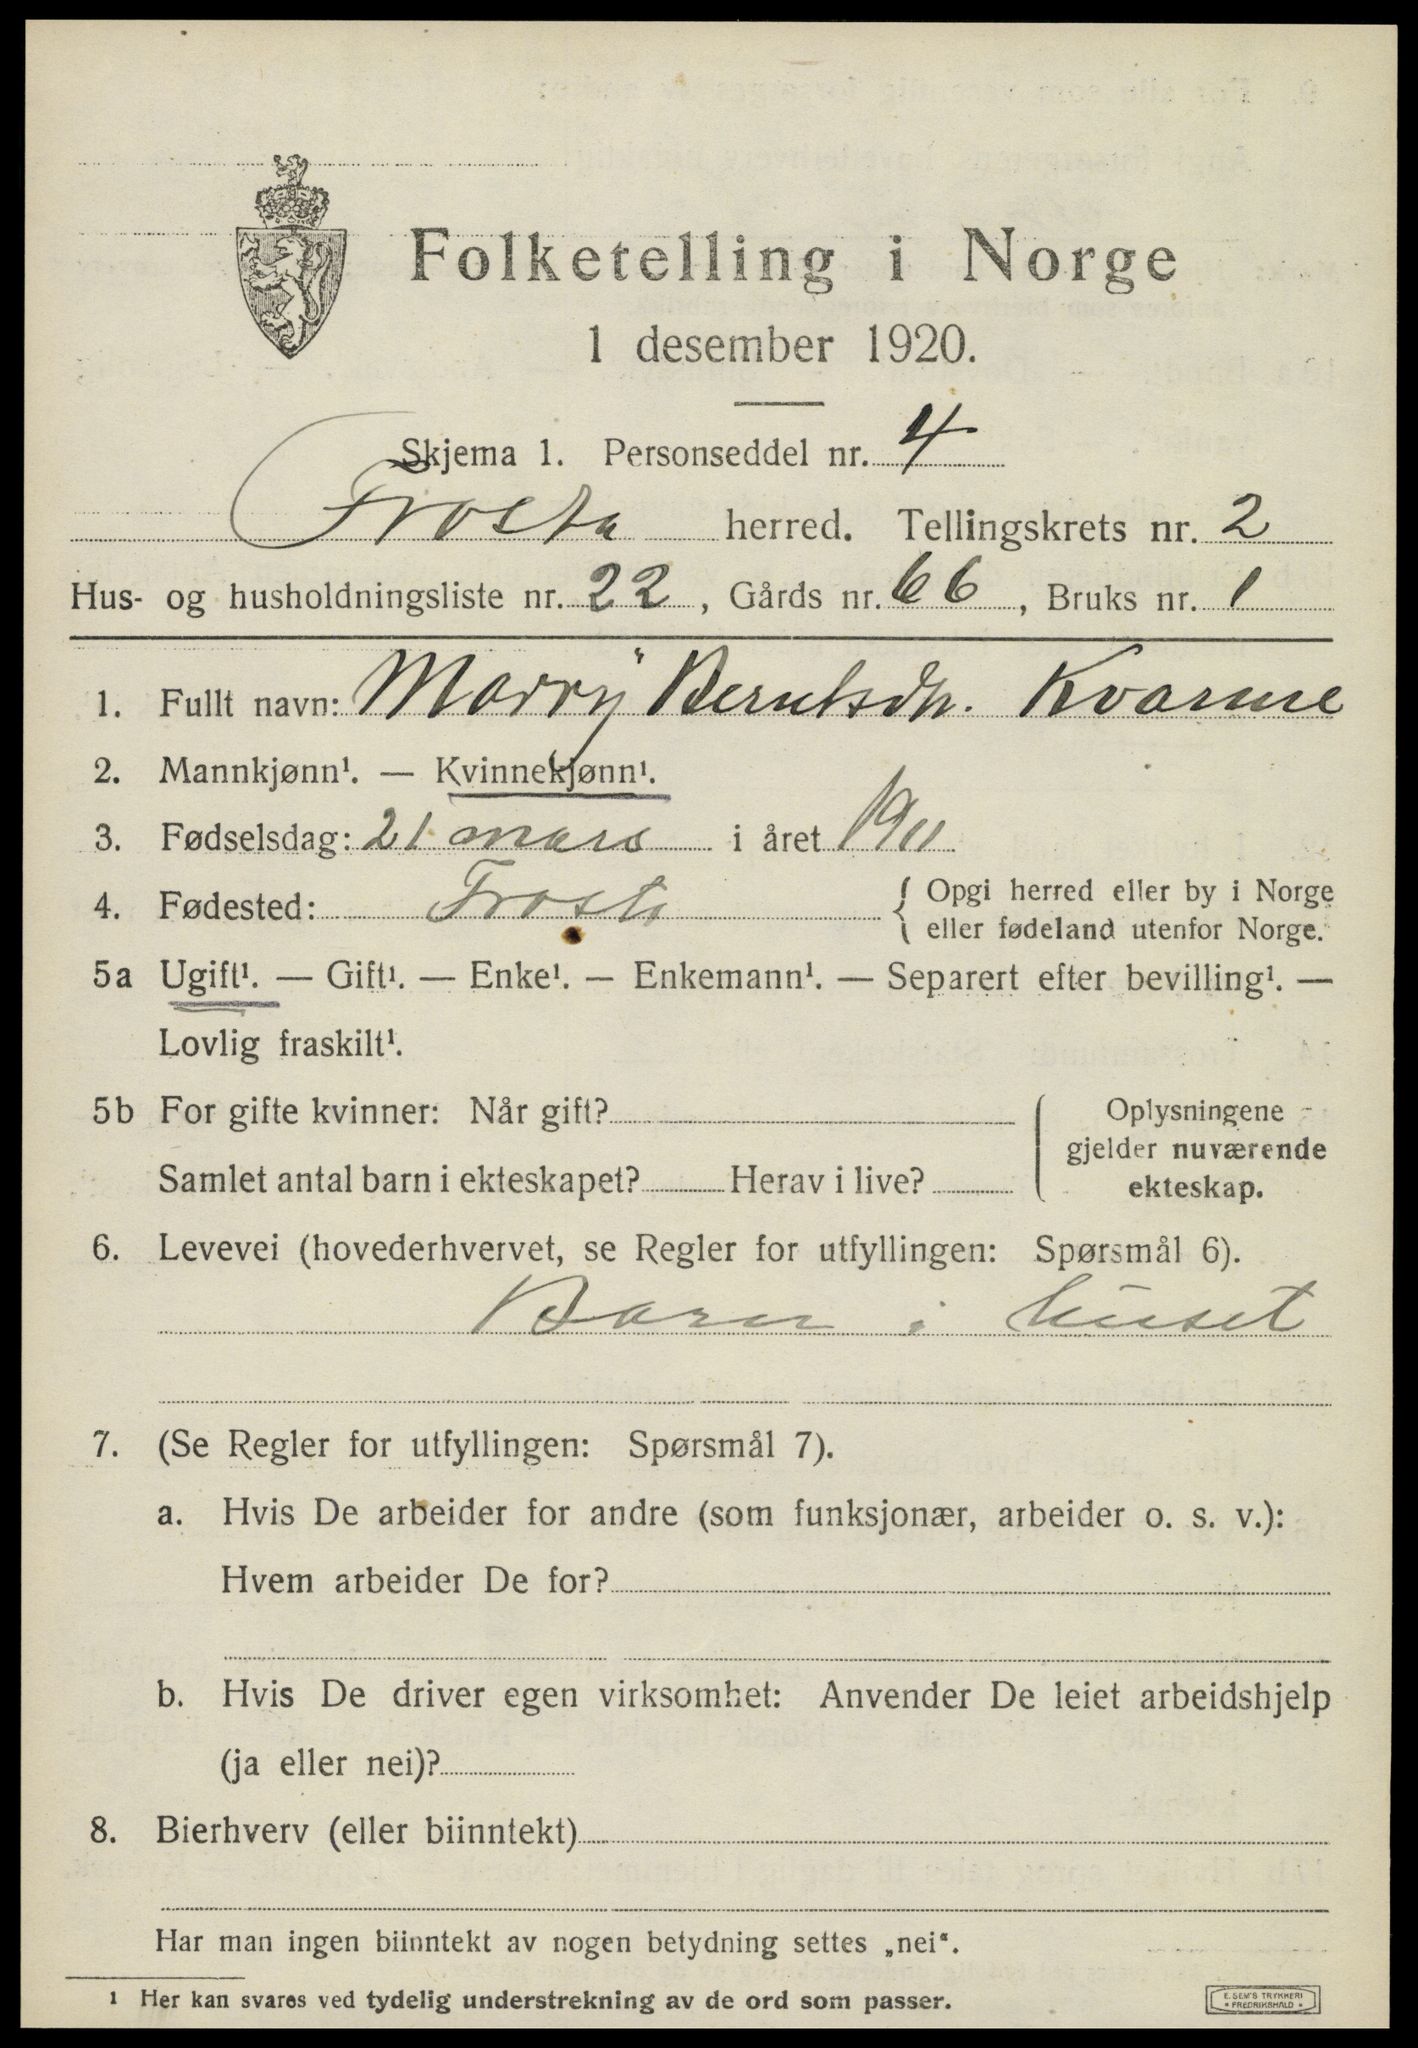 Folketelling i Norge
1 desember 1920.
Skjema 1. Personseddel nr. 4
Frosta herred. Tellingskrets nr. 2
Hus- og husholdningsliste nr. 22, Gårds nr. 66, Bruks nr. 1
1. Fullt navn: Marry Berntsdtr. Kvamme
2. Mannkjønn¹. — Kvinnekjønn¹.
3. Fødselsdag: 21 mars i året 1911
4. Fødested: Frosta { Opgi herred eller by i Norge
eller fødeland utenfor Norge.
5a Ugift¹. — Gift¹. — Enke¹. — Enkemann¹. — Separert efter bevilling¹. —
Lovlig fraskilt¹.
5b For gifte kvinner: Når gift?
Samlet antal barn i ekteskapet? Herav i live?
Oplysningene
gjelder nuværende
ekteskap.
6. Levevei (hovederhvervet, se Regler for utfyllingen: Spørsmål 6).
Barn i huset
7. (Se Regler for utfyllingen: Spørsmål 7).
a. Hvis De arbeider for andre (som funksjonær, arbeider o. s. v.):
Hvem arbeider De for?
b. Hvis De driver egen virksomhet: Anvender De leiet arbeidshjelp
(ja eller nei)?
8. Bierhverv (eller biinntekt)
Har man ingen biinntekt av nogen betydning settes „nei“.
1 Her kan svares ved tydelig understrekning av de ord som passer.
E. SEM'S TRYKKERI
* FREDRIKSHALD *